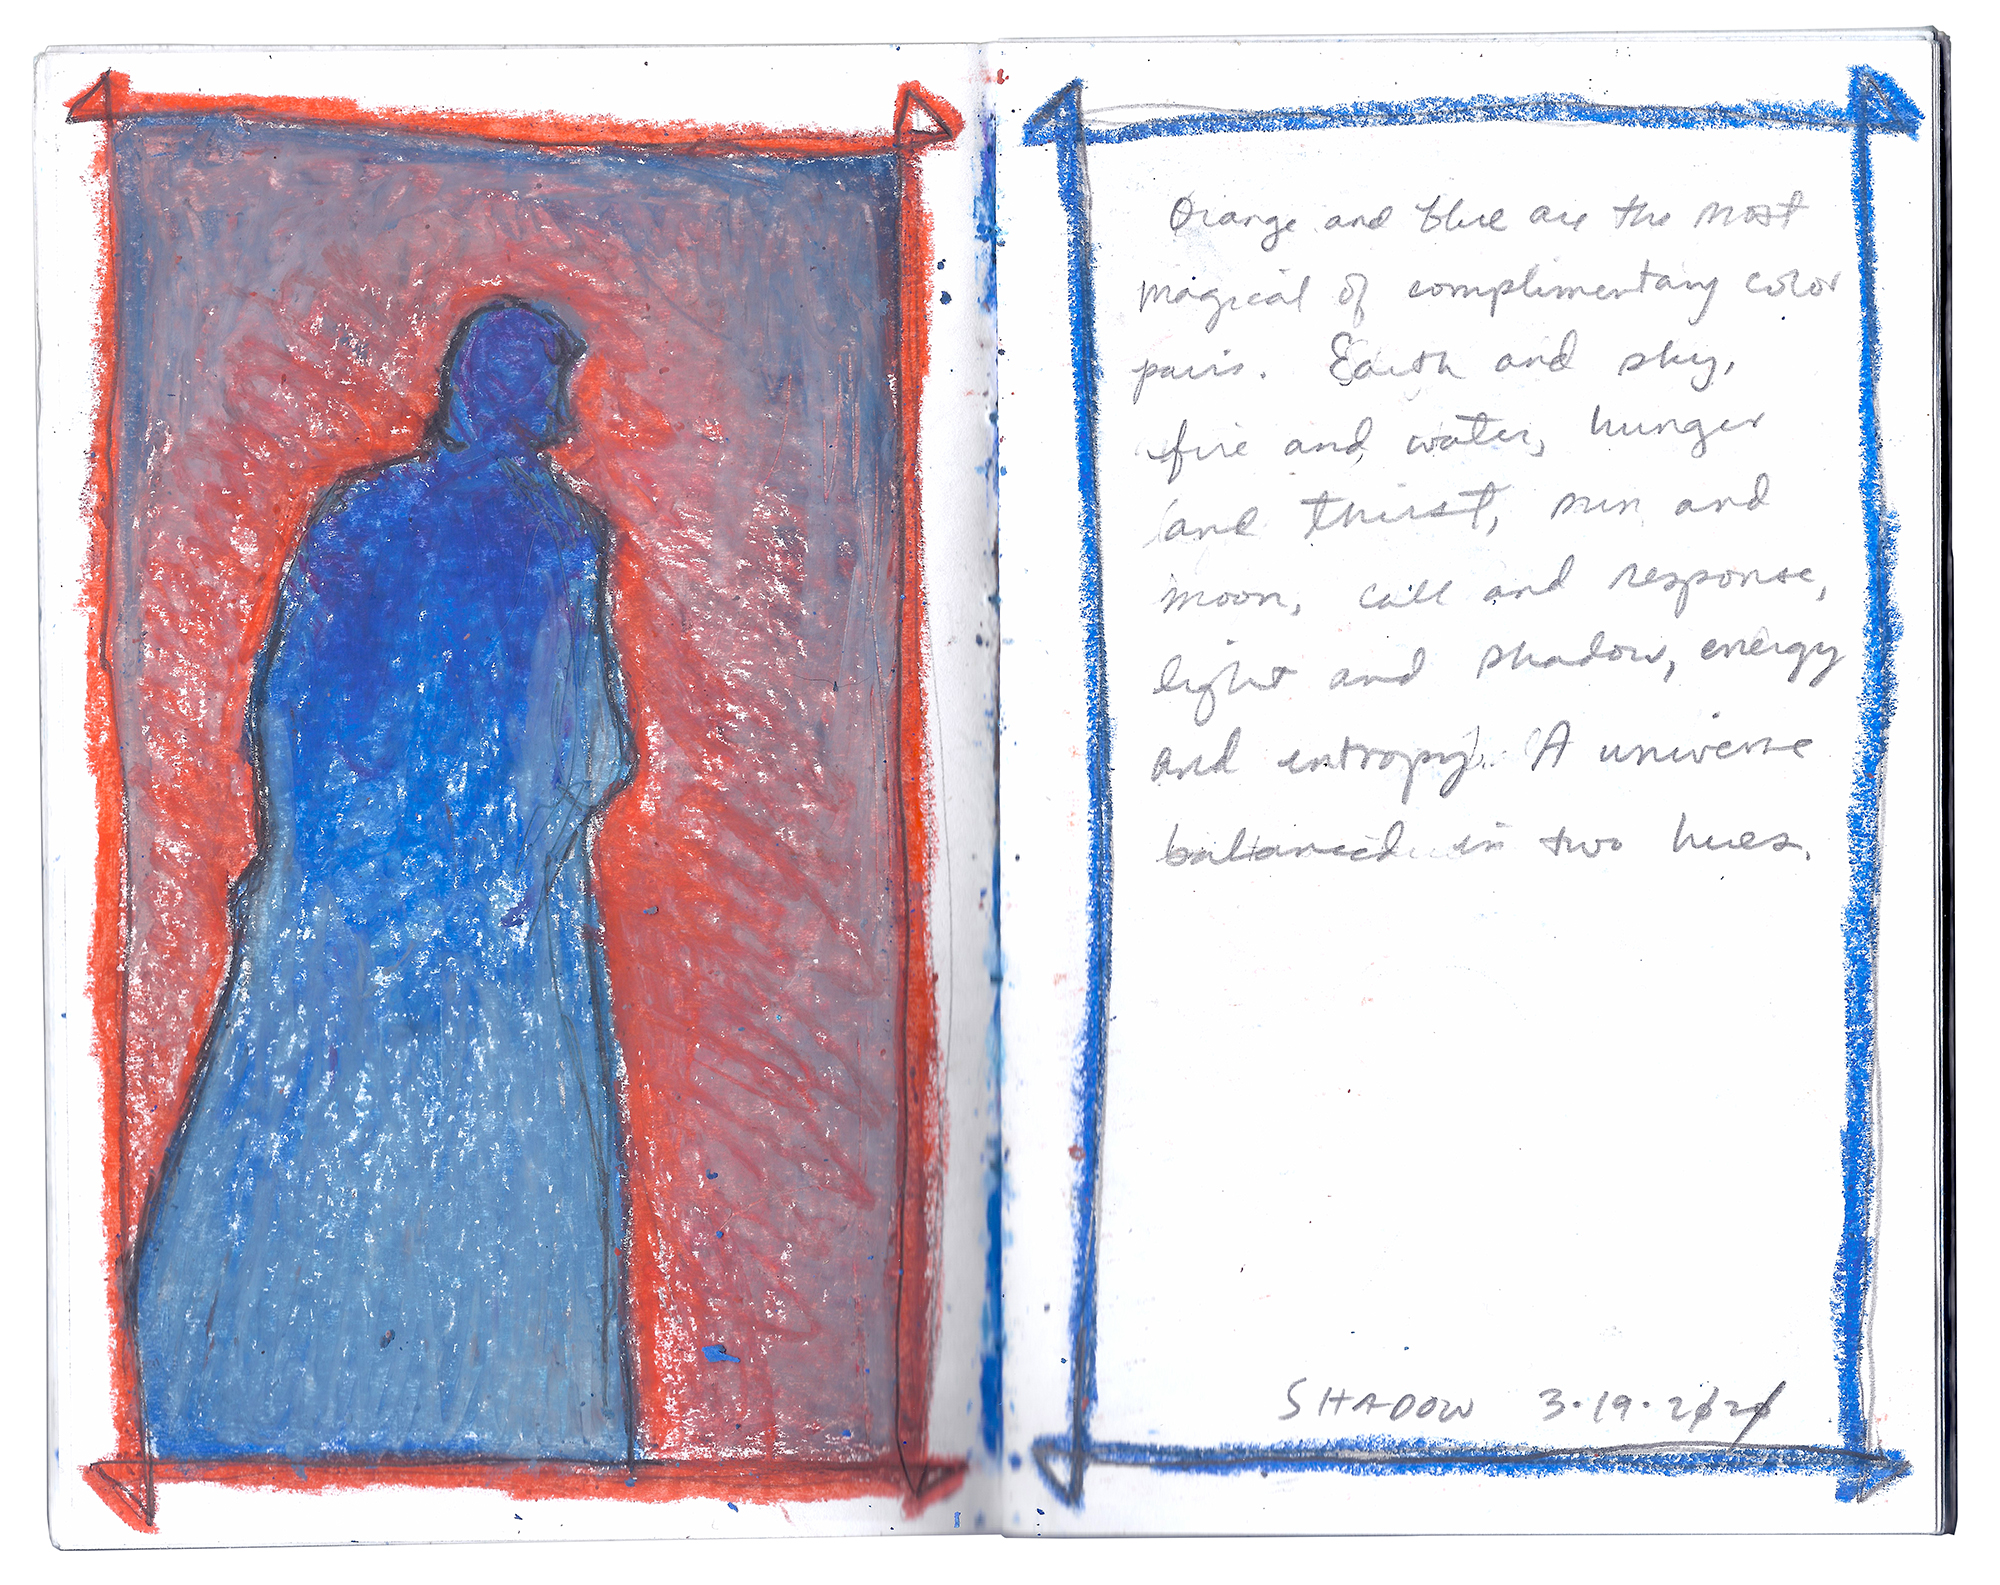 Orange and blue are the most
magical of complimentary color
pairs. Earth and sky,
fire and water, hunger
and thirst, sun and
moon, call and response,
light and shadow, energy
and entropy. A universe
balanced in two hues.
SHADOW 3.19.2020